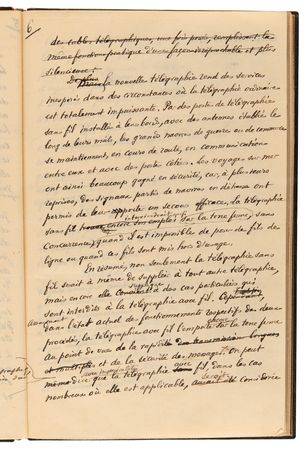 6
des cables télégraphiques, une fois posés, remplissent la
même fonction pratique d'une façon irréprochable et plus
silencieuse.
De plus la nouvelle télégraphie rend des services
inespérés dans des circonstances où la télégraphie ordinaire
est totalement impuissante. Par des postes de télégraphie
sans fil installés à leur bord, avec des antennes établies le
long de leurs mâts, les grands navires de guerre ou de commerce
se maintiennent, en cours de route, en communications
entre eux et avec des postes côtiers. Les voyages sur mer
ont ainsi beaucoup gagné en sécurité, car, à plusieurs
reprises, des signaux partis de navires en détresse ont
permis de leur porter un secours efficace. La télégraphie
sans fil trouve encore un emploi sur la terre ferme, sans
concurrence, quand il est impossible de poser des fils de
ligne ou quand ces fils sont mis hors d'usage.
En résumé, non seulement la télégraphie sans
fil serait à même de suppléer à tout autre télégraphie,
mais encore elle des cas particuliers qui
sont interdits à la télégraphie avec fil. Cependant,
dans l'état actuel des fonctionnements respectifs des deux
procédés, la télégraphie avec fil l'emporte sur la terre ferme
au point de vue de la rapidité
et multiples et de la sécurité des messages. On peut
même dire que la télégraphie avec fil, dans les cas
nombreux où elle est applicable, serait considérée